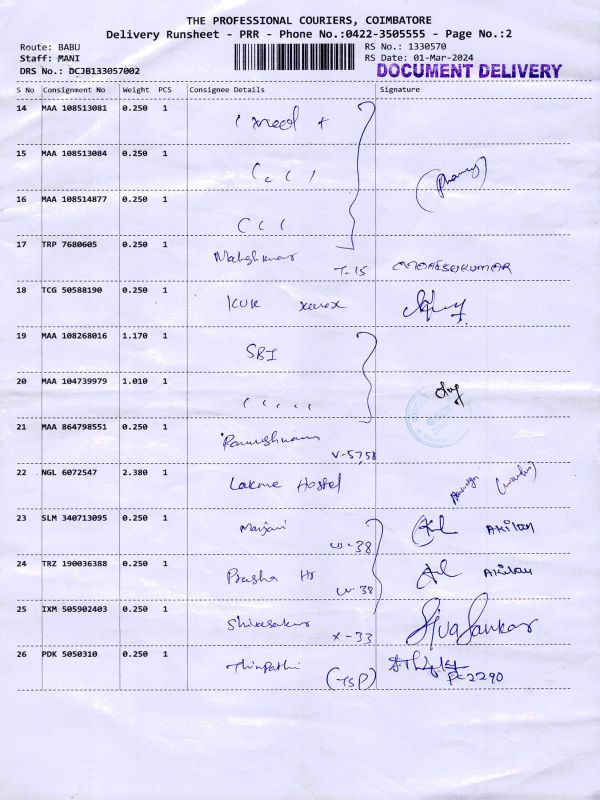 THE PROFESSIONAL COURIERS, COIMBATORE
Delivery Runsheet - PRR - Phone No.:0422-3505555 - Page No.:2
Route: BABU RS No.: 1330570
Staff: MANI RS Date: 01-Mar-2024
DRS No.: DCJB133057002 DOCUMENT DELIVERY
S No Consignment No Weight PCS Consignee Details Signature
14 MAA 108513081 0.250 1
15 MAA 108513084 0.250 1
16 MAA 108514877 0.250 1
17 TRP 7680605 0.250 1 T-15
18 TCG 50588190 0.250 1 KUK xerox
19 MAA 108268016 1.170 1 SBI
20 MAA 104739979 1.010 1
21 MAA 864798551 0.250 1 V-57,58
22 NGL 6072547 2.380 1 Lakme Hostel
23 SLM 340713095 0.250 1 W-38 AKilan
24 TRZ 190036388 0.250 1 W-38 AKilan
25 IXM 505902403 0.250 1 X-33 SivaSankar
26 PDK 5050310 0.250 1 Thirupathi (TSP) PC2290